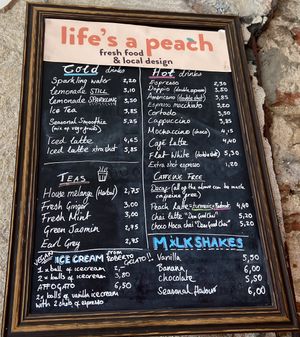 life's a peach
fresh food
& local design
Cold drinks
Sparkling water 2,20
Lemonade STILL 3,10
Lemonade SPARKLING 3,50
Ice Tea
Seasonal Smoothie
(mix of vegs/fruits)
Iced latte 4,65
Iced latte extra shot 5,85
TEAS
House melange (Herbal) 2,75
Fresh Ginger 3,00
Fresh Mint 3,00
Green Jasmin 2,75
Earl Grey 2,75
VEGAN ICE CREAM from ROBERTO GELATO!!
1 x ball of icecream 2,-
2 x balls of icecream 3,80
AFFOGATO 6,50
2x balls of vanilla icecream
with 2 shots of espresso
Hot drinks
Espresso 2,30
Doppio (double espresso)
Americano (double shot) 3,85
Espresso macchiato
Cortado
Cappuccino
Mochaccino
Café latte 4,40
Flat White (double shot)
Extra shot espresso 1,20
CAFFEINE FREE
Decaf (all of the above can be made
caffeine free)
Peach Lane
Chai latte 4,40
Choco Maca chai
MILKSHAKES
Vanilla 5,50
Banana 6,00
Chocolate 5,50
Seasonal flavour 6,00